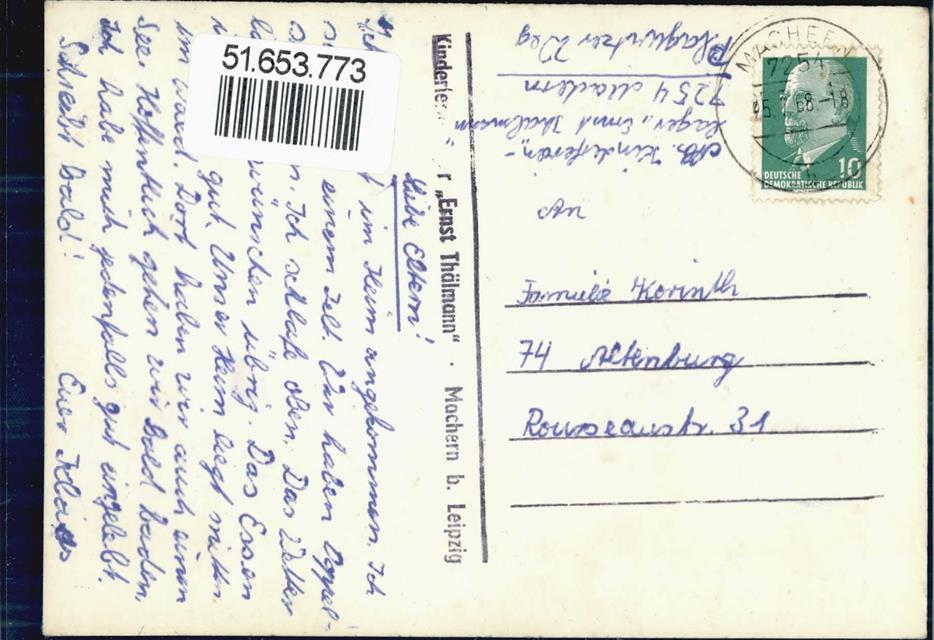 51.653.773
Liebe Eltern!
im Heim angekommen. Ich
einem Zelt. Wir haben Doppel-
n. Ich schlafe oben. Das Wetter
wünschen übrig. Das Essen
gut. Unser Heim liegt mitten
im Wald. Dort haben wir auch einen
See. Hoffentlich gehen wir bald baden.
Ich habe mich jedenfalls gut eingelebt.
Schreibt bald! Euer Klaus
Kinderfer r „Ernst Thälmann“ · Machern b. Leipzig
Abs. Kinderferien-
lager „Ernst Thälmann“
7254 Machern
Plagwitzer Weg
MACHERN
7254
68-18
10
DEUTSCHE
DEMOKRATISCHE REPUBLIK
An
Familie Korinth
74 Altenburg
Rousseaustr. 31